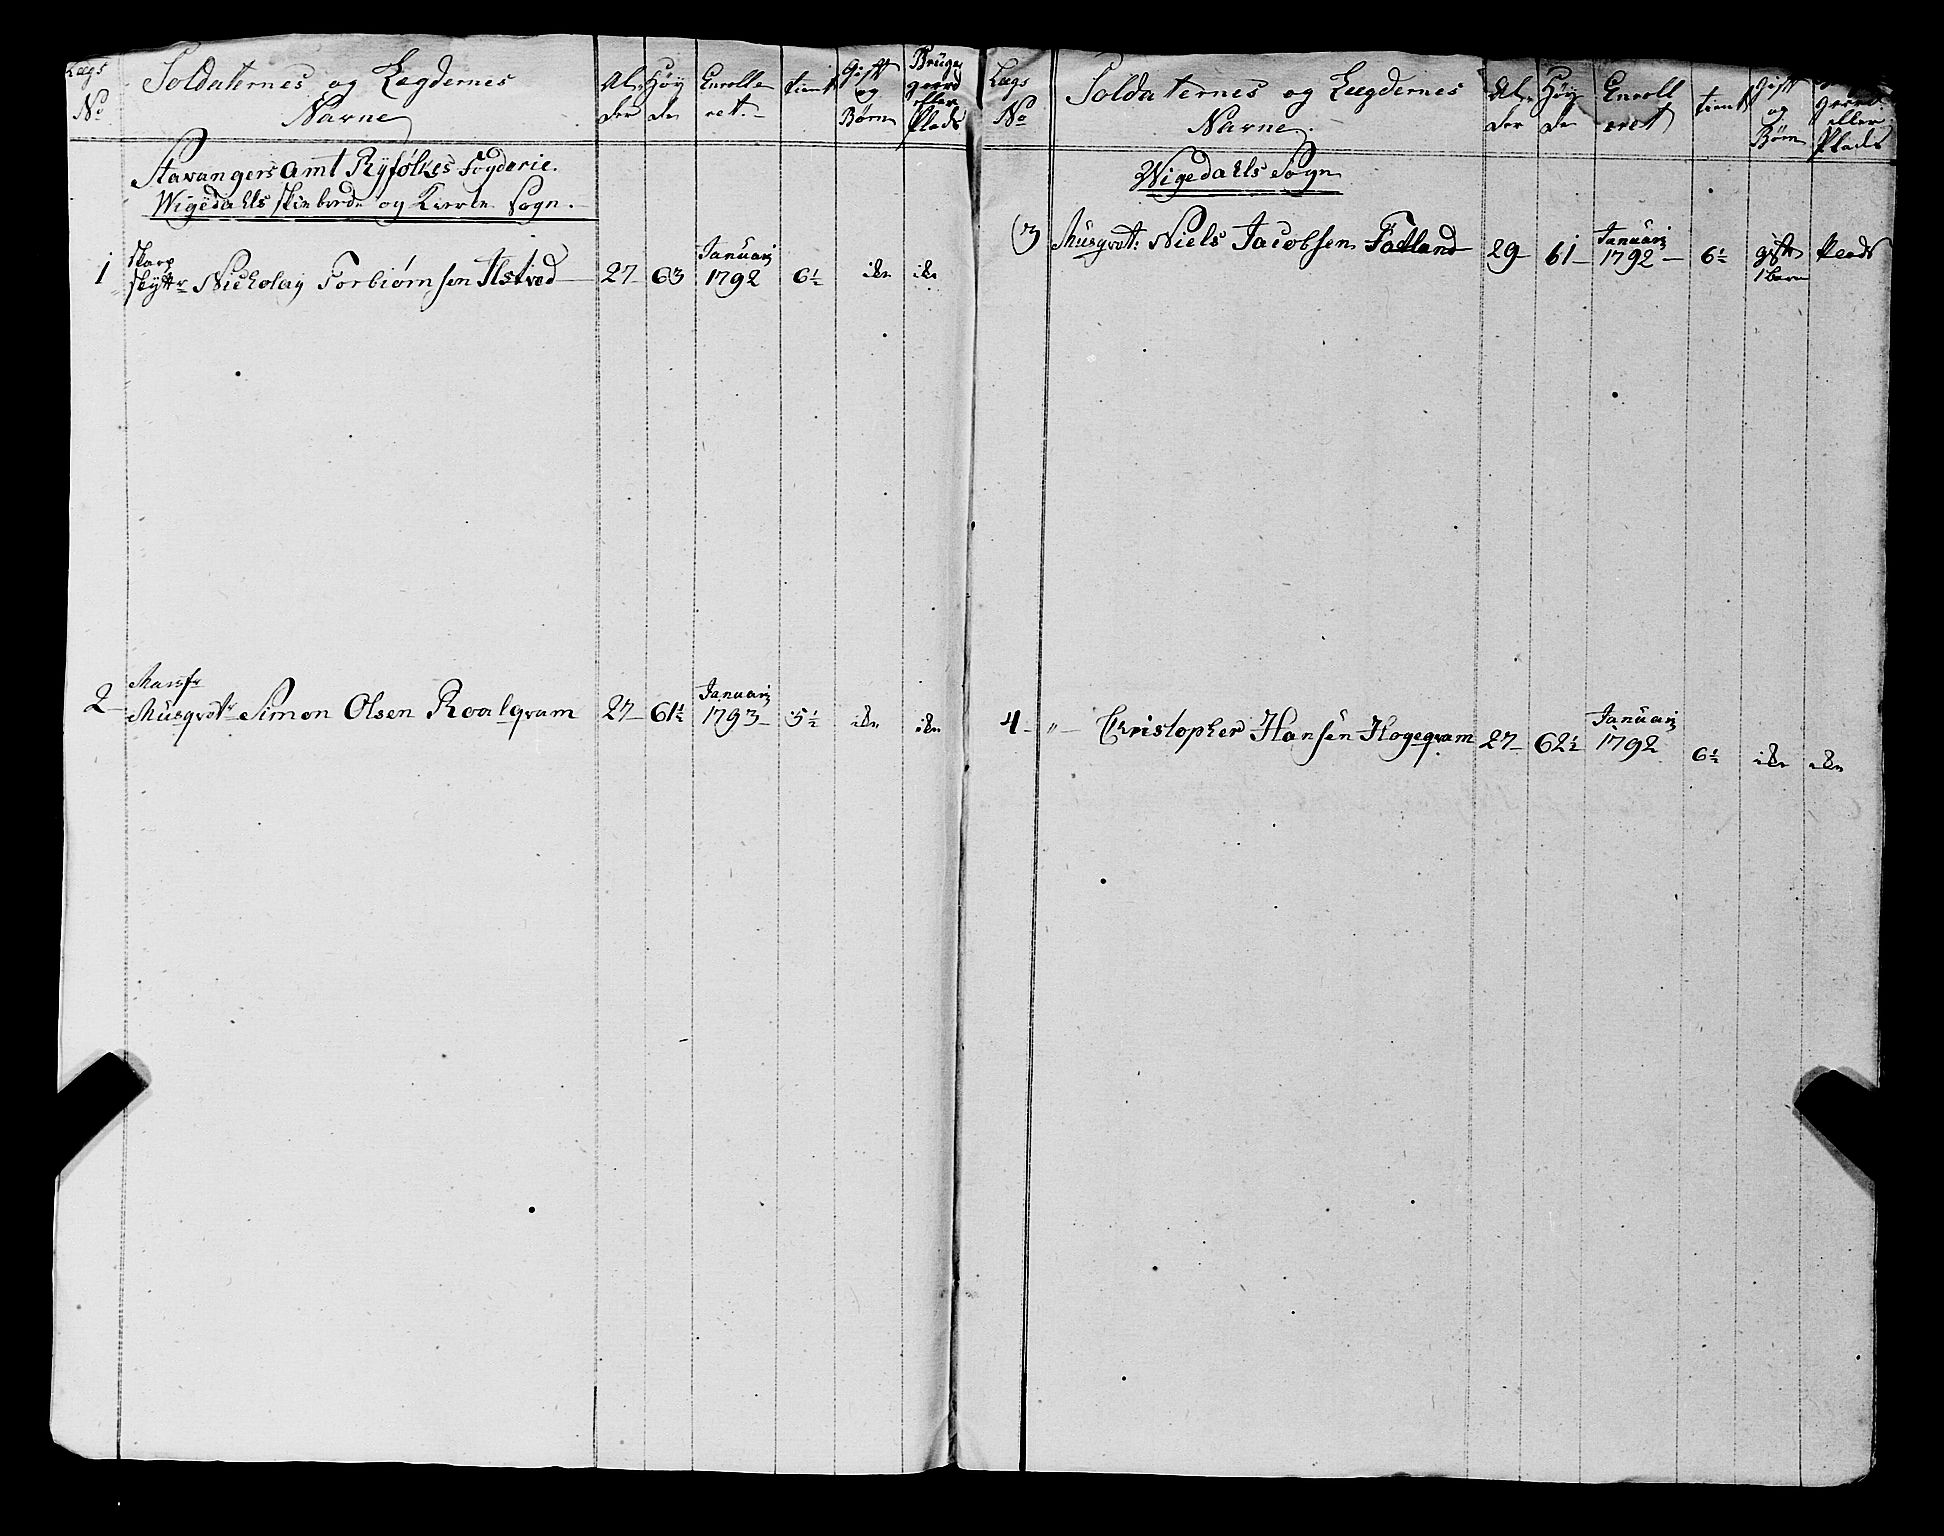 Lægs No
Soldaternes og Lægdernes Navne
Al der
Høy de
Enrolle ret.
tient
Gift og Børn
Brüger gaard eller Plads
Stavangers Amt Ryfølkes Fogderie.
Wigedahls Skibrede og Sogn.
1 Skarp
Skyttr Nicholay Torbiørnsen Ilstved 27 63 Januarj 1792 6½ ike ike
2 Musqvotr Simon Olsen Roalqvam 27 61½ Januarj 1793 5½ ike ike
Lægs No
Soldaternes og Lægdernes Navne.
Al der
Høy de
Enroll eret
tient
Gift og Børn
gaard eller Plads
Wigedahls Sogn
3 Musqvot: Niels Jacobsen Fatland 29 61 Januarj 1792 6½ gift 1 barn Plads
4 " Christopher Hansen Hogeqvam 27 62½ Januarj 1792 6½ ike ike